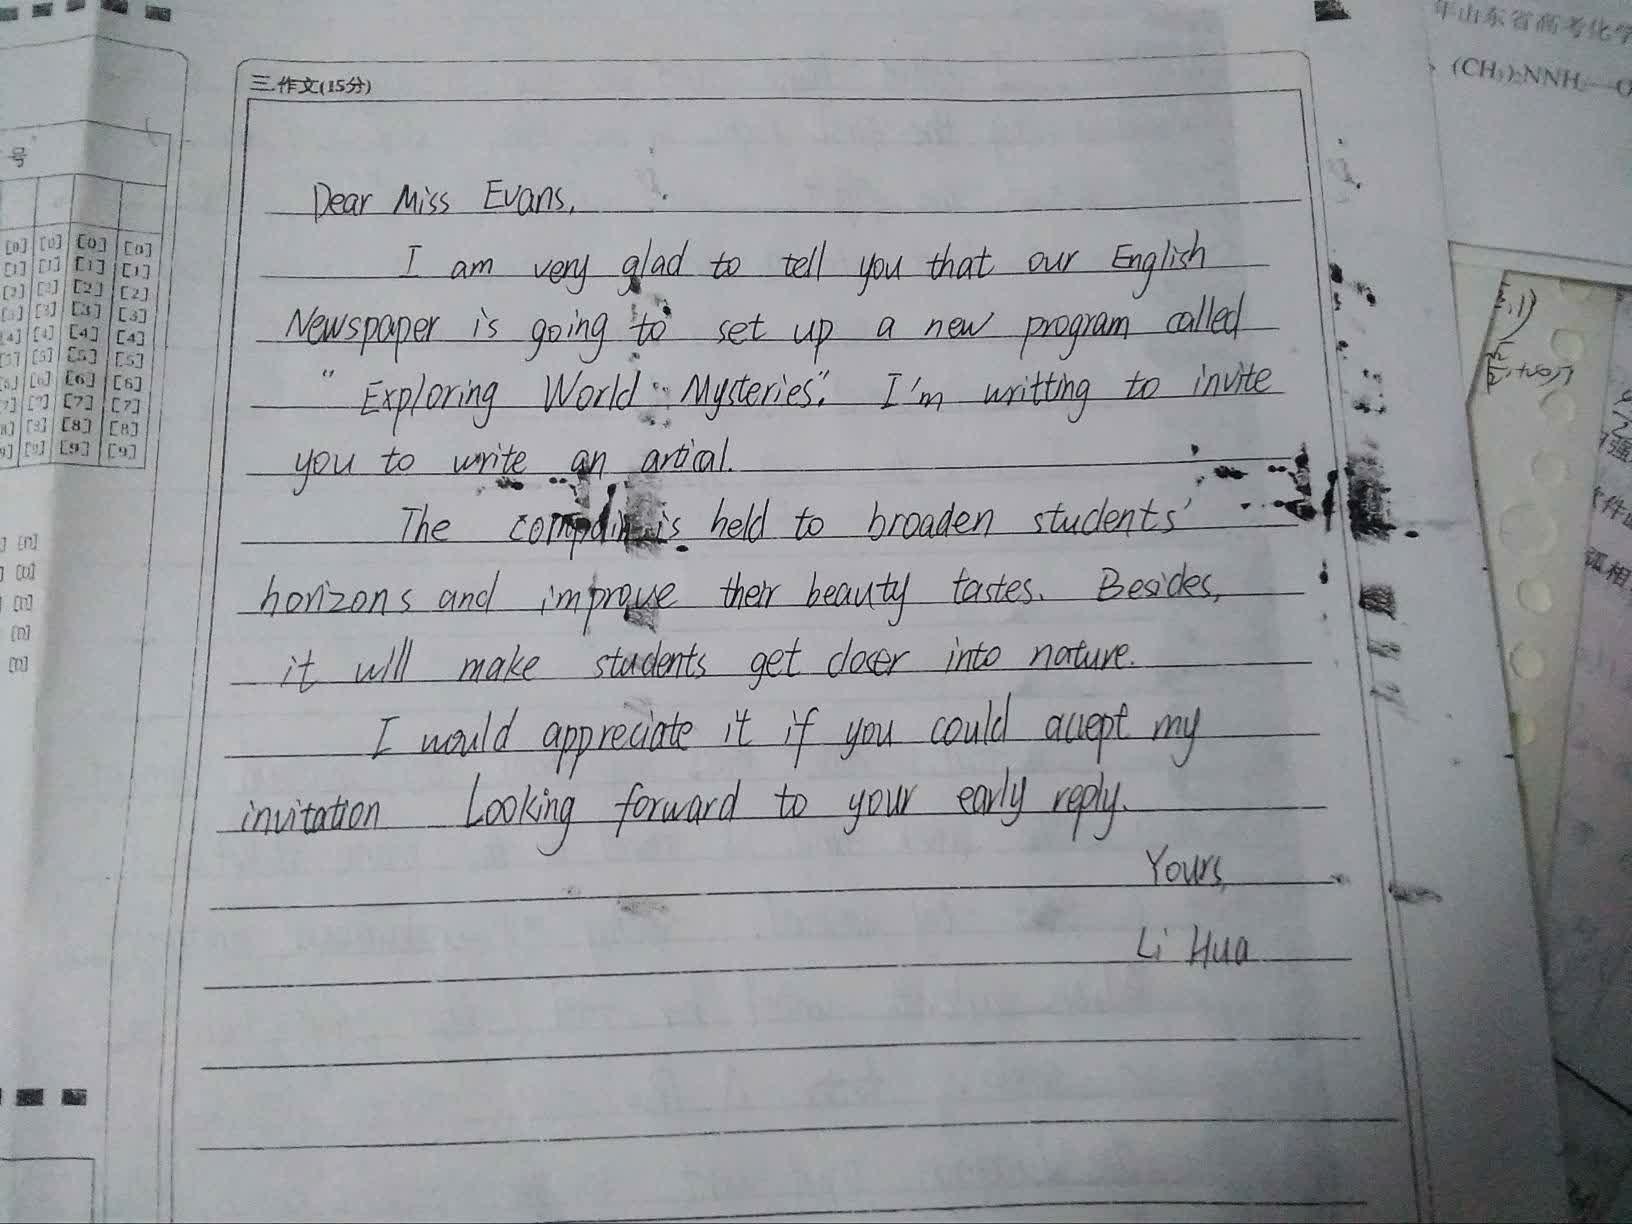 三.作文(15分)
Dear Miss Evans,
I am very glad to tell you that our English
Newspaper is going to set up a new program called
"Exploring World Mysteries". I'm writting to invite
you to write an artical.
The is held to broaden students'
horizons and improve their beauty tastes. Besides,
it will make students get closer into nature.
I would appreciate it if you could accept my
invitation Looking forward to your early reply.
Yours,
Li Hua
号
[0] [0] [0] [0]
[1] [1] [1] [1]
[2] [2] [2] [2]
[3] [3] [3] [3]
[4] [4] [4] [4]
[5] [5] [5] [5]
[6] [6] [6] [6]
[7] [7] [7] [7]
[8] [8] [8] [8]
[9] [9] [9] [9]
年山东省高考化学
(CH₃)₂NNH₂—O